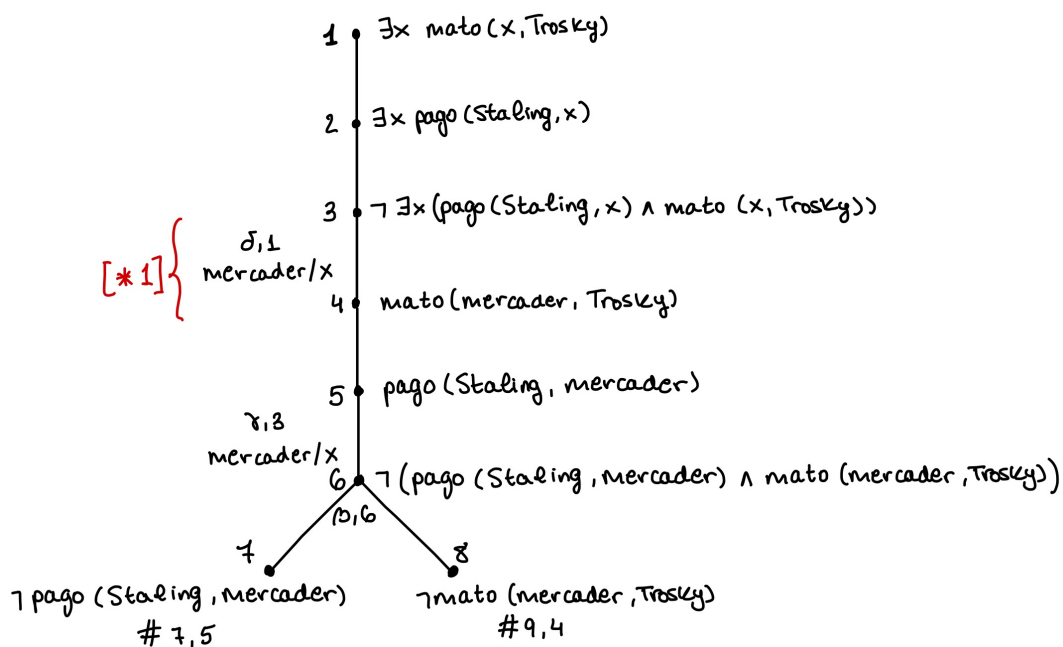 1 ∃x mato (x, Trosky)
2 ∃x pago (Staling, x)
3 ¬ ∃x (pago (Staling, x) ∧ mato (x, Trosky))
[*1] {
δ, 1
mercader/x
4 mato (mercader, Trosky)
5 pago (Staling, mercader)
γ, 3
mercader/x
6 ¬ (pago (Staling, mercader) ∧ mato (mercader, Trosky))
β, 6
7 8
¬ pago (Staling, mercader) ¬ mato (mercader, Trosky)
# 7, 5 # 9, 4